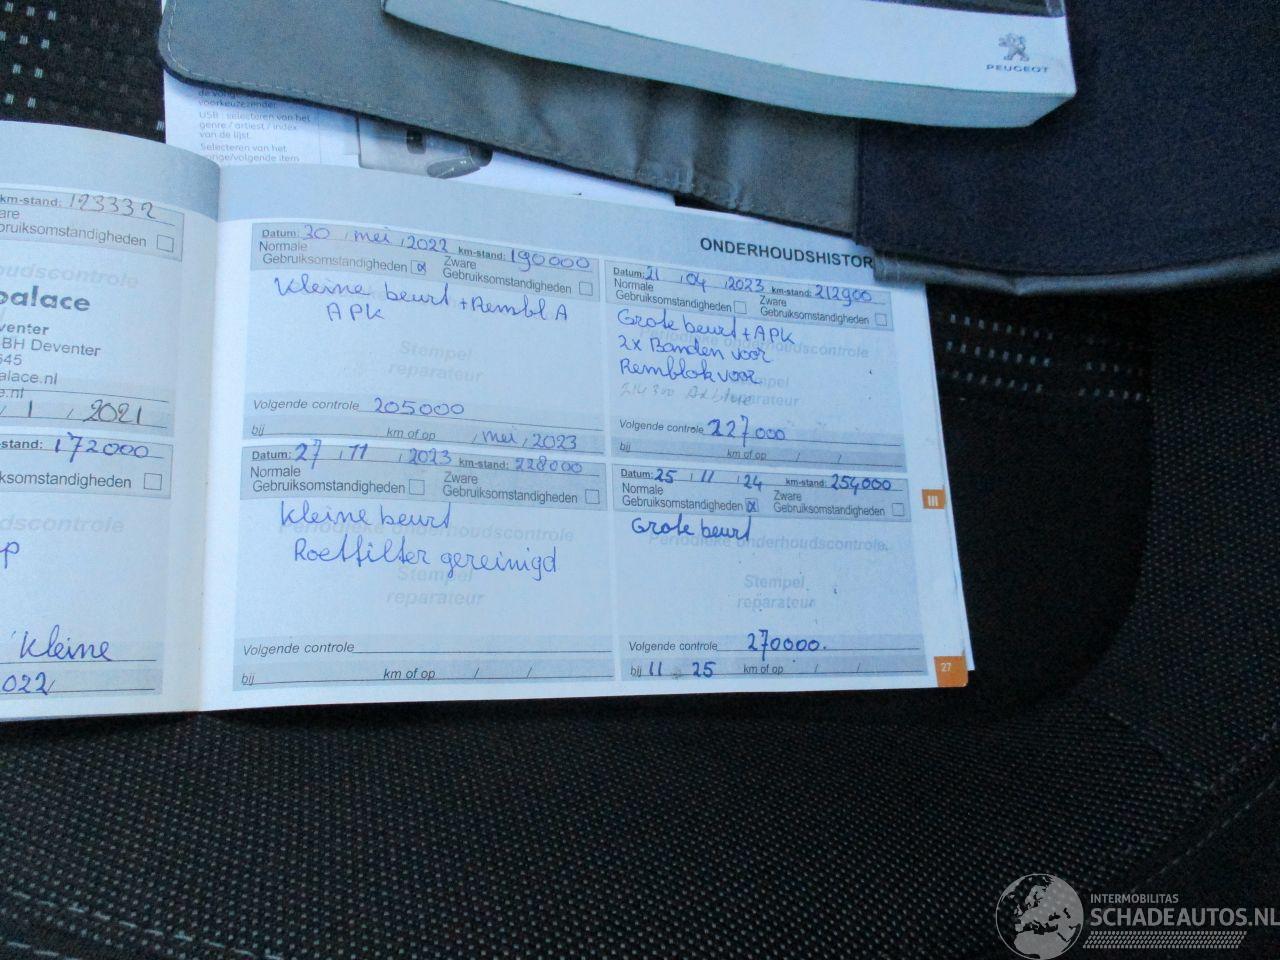 PEUGEOT
voorkeuzezender
USB : selecteren van het
genre / artiest / index
van de lijst.
Selecteren van het
km-stand: 123332
ware
bruiksomstandigheden
palace
Deventer
BH Deventer
545
palace.nl
e.nl
/ 1 / 2021
stand: 172000
ksomstandigheden
Kleine
2022/
ONDERHOUDSHISTOR
Datum: 30 / mei / 2022 km-stand: 190000
Normale Gebruiksomstandigheden ☒ Zware Gebruiksomstandigheden ☐
Kleine beurt + Rembl A
APK
Stempel
reparateur
Volgende controle 205000
bij km of op / mei / 2023
Datum: 21 / 04 / 2023 km-stand: 212900
Normale Gebruiksomstandigheden ☐ Zware Gebruiksomstandigheden ☐
Grote beurt + APK
2x Banden voor
Remblok voor
Volgende controle 227000
bij km of op / /
Datum: 27 / 11 / 2023 km-stand: 228000
Normale Gebruiksomstandigheden ☐ Zware Gebruiksomstandigheden ☐
Kleine beurt
Periodieke onderhoudscontrole
Roetfilter gereinigd
Stempel
reparateur
Volgende controle
bij km of op / /
Datum: 25 / 11 / 24 km-stand: 254000
Normale Gebruiksomstandigheden ☒ Zware Gebruiksomstandigheden ☐
Grote beurt
Periodieke onderhoudscontrole
Stempel
reparateur
Volgende controle 270000.
bij 11 25 km of op / /
III
27
INTERMOBILITAS
SCHADEAUTOS.NL